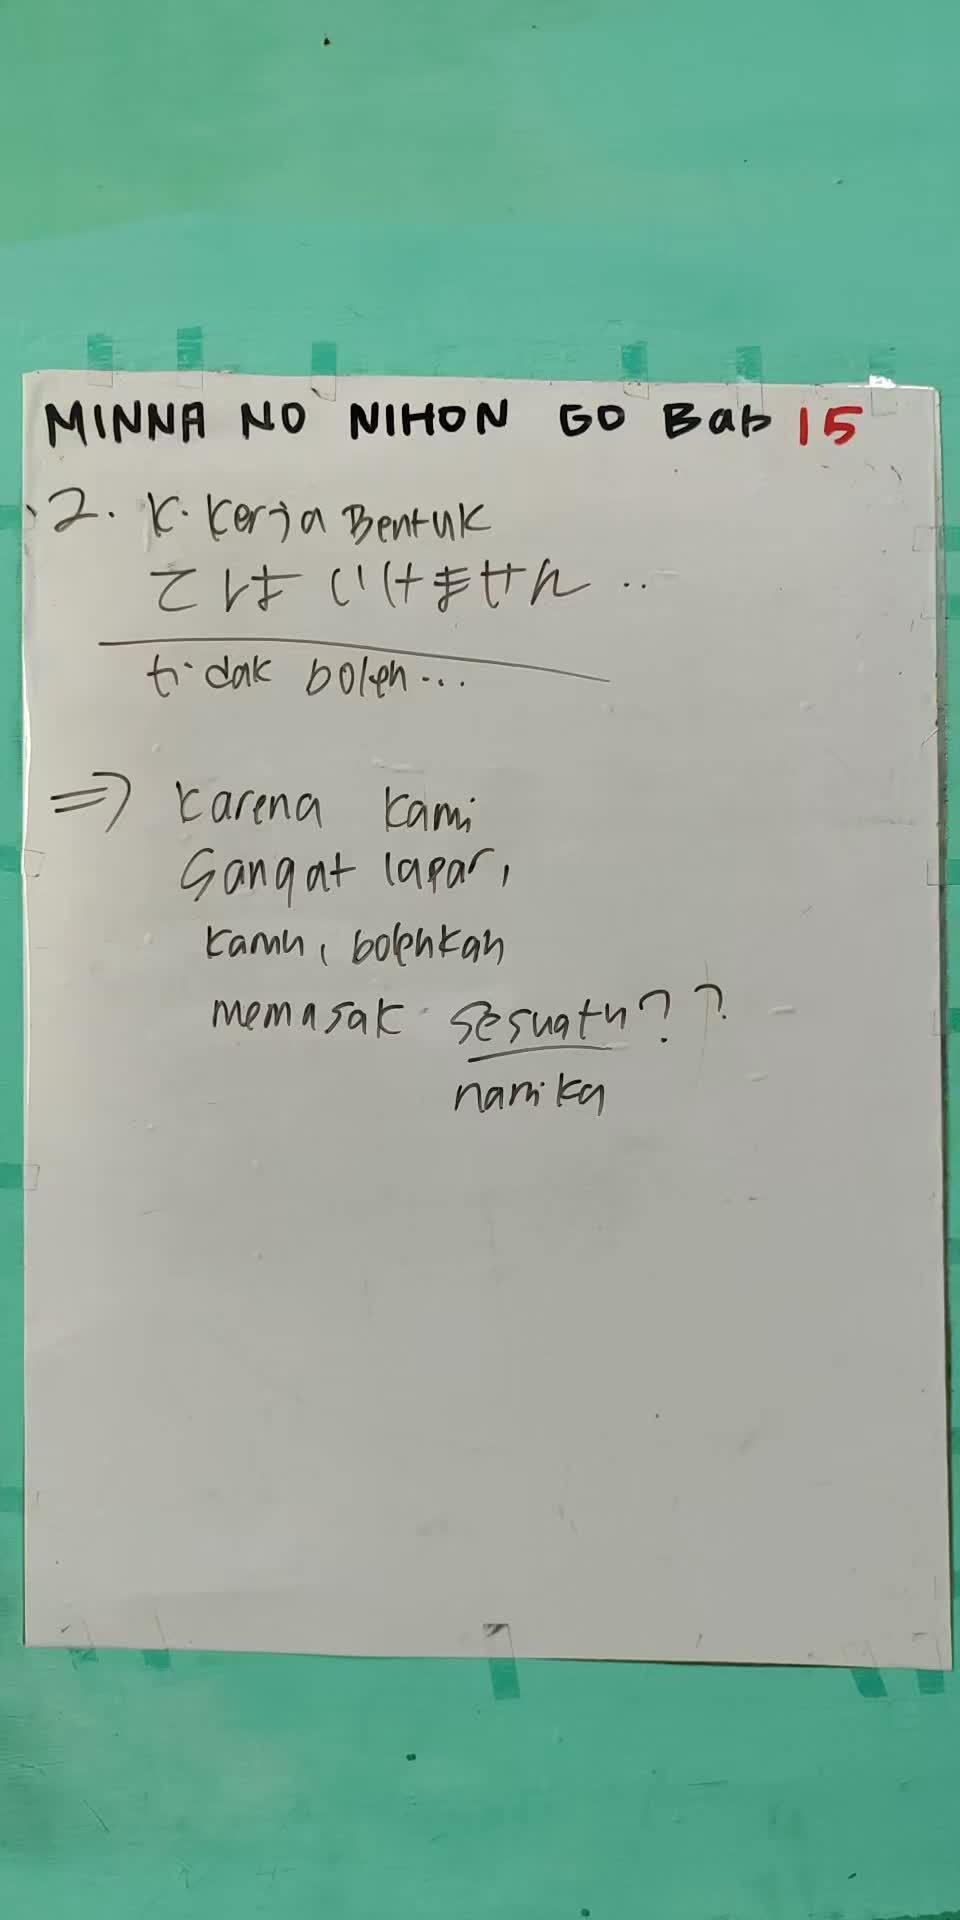 MINNA NO NIHON GO Bab 15
2. K. Kerja Bentuk
てはいけません..
tidak boleh...
⇒ Karena kami
Sangat lapar,
kamu, bolehkah
memasak sesuatu??
nanika